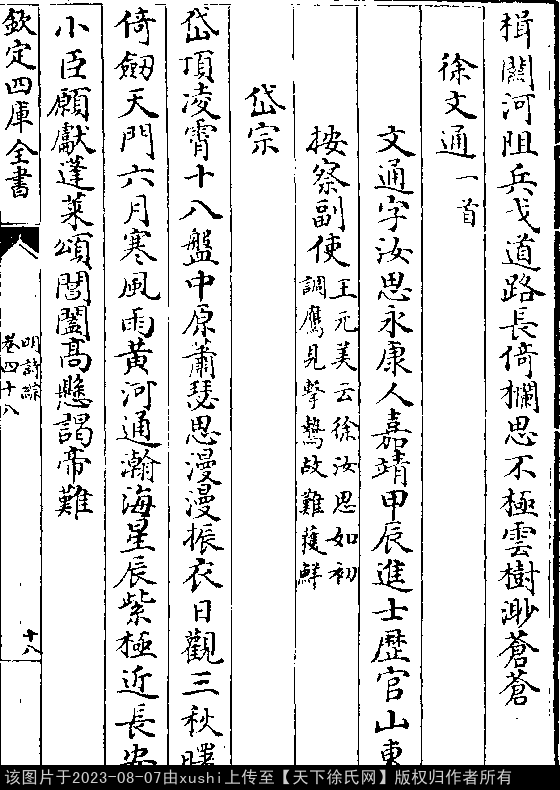 楫關河阻兵戈道路長倚欄思不極雲樹渺蒼蒼
徐文通一首
文通字汝思永康人嘉靖甲辰進士歴官山東
按察副使王元美云徐汝思如初
調鷹見擊鷙故難獲鮮
岱宗
岱頂凌霄十八盤中原蕭瑟思漫漫振衣日觀三秋曙
倚劒天門六月寒風雨黄河通瀚海星辰紫極近長安
小臣願獻蓬萊頌閶闔髙懸謁帝難
欽定四庫全書
明詩綜
卷四十八
十八
该图片于2023-08-07由xushi上传至【天下徐氏网】版权归作者所有